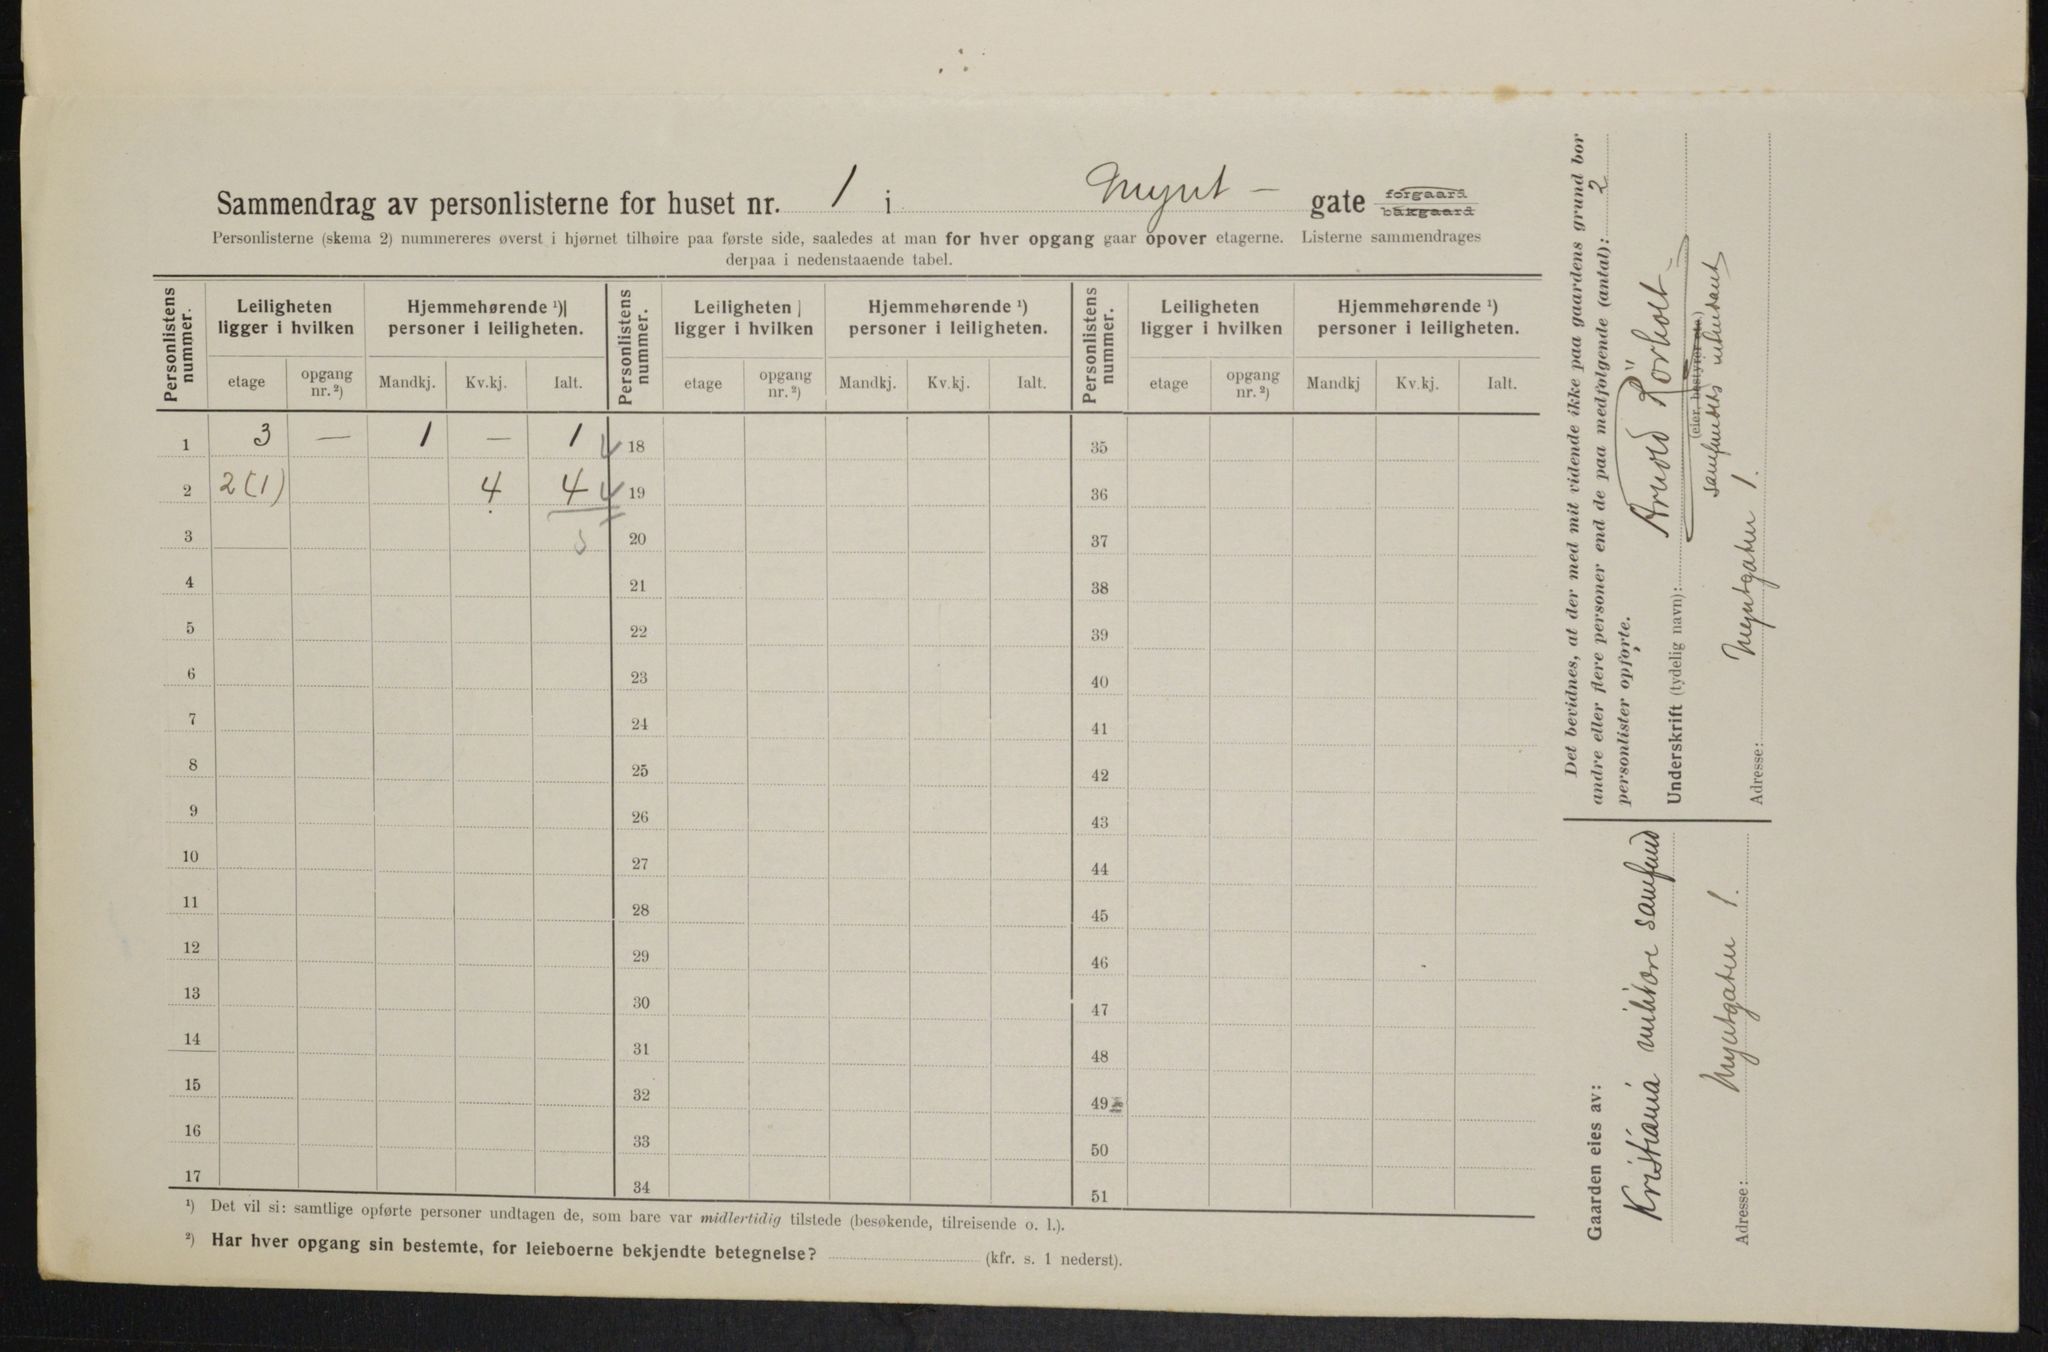 Sammendrag av personlisterne for huset nr. 1 i Mynt - gate forgaard bakgaard
Personlisterne (skema 2) nummereres øverst i hjørnet tilhøire paa første side, saaledes at man for hver opgang gaar opover etagerne. Listerne sammendrages
derpaa i nedenstaaende tabel.
Personlistens nummer. Leiligheten ligger i hvilken Hjemmehørende ¹) personer i leiligheten. Personlistens nummer. Leiligheten ligger i hvilken Hjemmehørende ¹) personer i leiligheten. Personlistens nummer. Leiligheten ligger i hvilken Hjemmehørende ¹) personer i leiligheten.
etage opgang nr. ²) Mandkj. Kv.kj. Ialt. etage opgang nr. ²) Mandkj. Kv.kj. Ialt. etage opgang nr. ²) Mandkj Kv.kj. Ialt.
1 3 — 1 — 1 18 35
2 2 (1) 4 4 19 36
3 5 20 37
4 21 38
5 22 39
6 23 40
7 24 41
8 25 42
9 26 43
10 27 44
11 28 45
12 29 46
13 30 47
14 31 48
15 32 49
16 33 50
17 34 51
¹) Det vil si: samtlige opførte personer undtagen de, som bare var midlertidig tilstede (besøkende, tilreisende o. l.).
²) Har hver opgang sin bestemte, for leieboerne bekjendte betegnelse? (kfr. s. 1 nederst).
Det bevidnes, at der med mit vidende ikke paa gaardens grund bor
andre eller flere personer end de paa medfølgende (antal): 2
personlister opførte.
Underskrift (tydelig navn): Arnold Rörholt
(eier, bestyrer etc.)
samfundets
Adresse: Myntgaten 1.
Gaarden eies av:
Kristiania militære samfund
Adresse: Myntgaten 1.